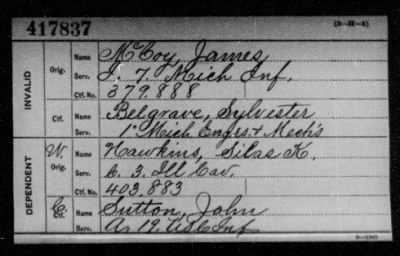 417837
(3-M-4)
INVALID
Orig. Name McCoy, James
Serv. I. 7. Mich Inf.
Ctf. No. 379.888
Ctf. Name Belgrave, Sylvester
Serv. 1" Mich Engrs. + Mech's
DEPENDENT
W. Orig. Name Hawkins, Silas K.
Serv. C. 3. Ill Cav.
Ctf. No. 403.883
C. Ctf. Name Sutton, John
Serv. 19. Inf